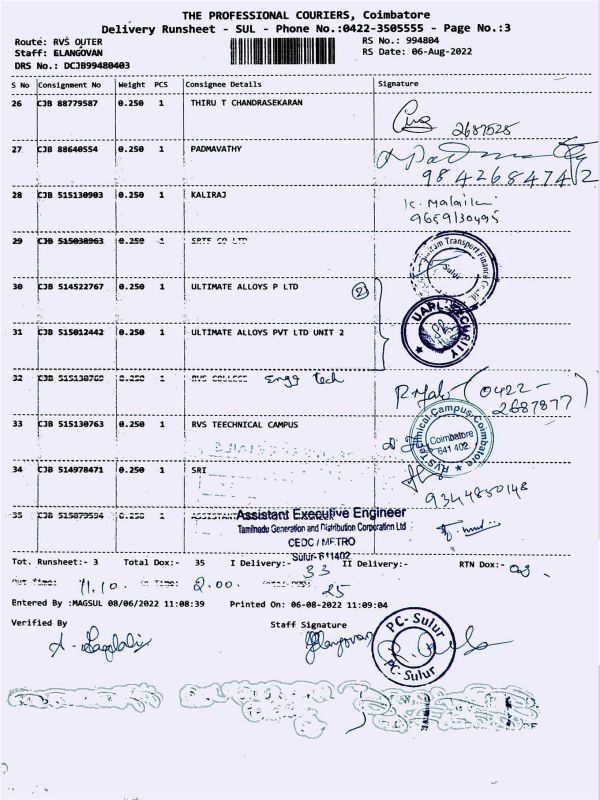 THE PROFESSIONAL COURIERS, Coimbatore
Delivery Runsheet - SUL - Phone No.:0422-3505555 - Page No.:3
Route: RVS OUTER
RS No.: 994804
Staff: ELANGOVAN
RS Date: 06-Aug-2022
DRS No.: DCJB99480403
S No Consignment No Weight PCS Consignee Details Signature
26 CJB 88779587 0.250 1 THIRU T CHANDRASEKARAN
2687525
27 CJB 88640554 0.250 1 PADMAVATHY
9842684742
28 CJB 515130903 0.250 1 KALIRAJ
9659130495
29 CJB 515038963 0.250 1
Sulur
30 CJB 514522767 0.250 1 ULTIMATE ALLOYS P LTD 2
UARL SECURITY
31 CJB 515012442 0.250 1 ULTIMATE ALLOYS PVT LTD UNIT 2
32 CJB 515130769 0.250 1 RVS COLLEGE Engg tech
(0422-
2687877)
33 CJB 515130763 0.250 1 RVS TEECHNICAL CAMPUS
RVS Technical Campus-Coimbatore
Coimbatore
641 402
34 CJB 514978471 0.250 1 SRI
9344850148
35 CJB 515879594 0.250 1
Assistant Executive Engineer
Tamilnadu Generation and Distribution Corporation Ltd
CEDC / METRO
Sulur- 611402
Tot. Runsheet:- 3 Total Dox:- 35 I Delivery:- 33 II Delivery:- RTN Dox:- 02
Out Time: 11.10. In Time: 2.00. 25
Entered By :MAGSUL 08/06/2022 11:08:39 Printed On: 06-08-2022 11:09:04
Verified By
Staff Signature
Elangovan
PC- Sulur
PC-Sulur